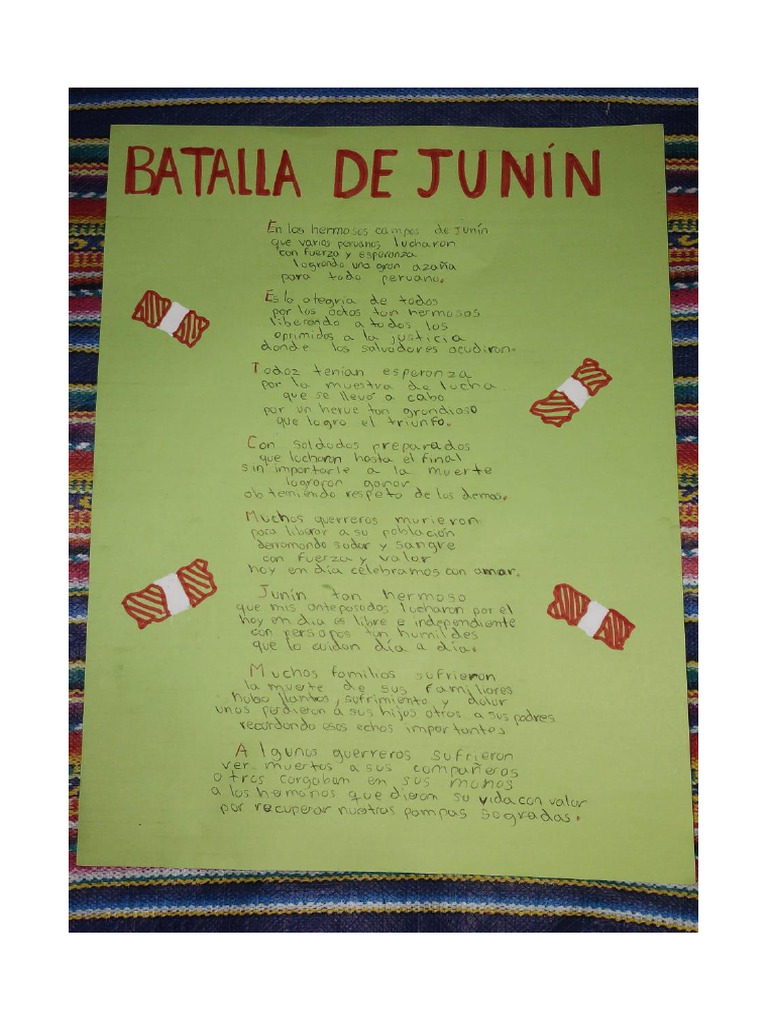 BATALLA DE JUNÍN
En los hermosos campos de Junín
que varios peruanos lucharon
con fuerza y esperanza
logrando una gran azaña
para todo peruano.
Es la alegria de todos
por los actos tan hermosos
liberando a todos los
oprimidos a la justicia
donde los salvadores acudiron.
Todoz tenían esperanza
por la muestra de lucha
que se llevó a cabo
por un herue tan grandioso
que logro el triunfo.
Con soldados preparados
que lucharon hasta el final
sin importarle a la muerte
lograron ganar
obteniendo respeto de los demas.
Muchos guerreros murieron
para liberar a su población
derramando sudor y sangre
con fuerza y valor
hoy en día celebramos con amar.
Junín tan hermoso
que mis antepasados lucharon por el
hoy en dia es libre e independiente
con personas tan humildes
que lo cuidan día a día.
Muchos familias sufrieron
la muerte de sus familiares
hubo llantos, sufrimiento y dolor
unos perdieron a sus hijos otros a sus padres
recordando esos echos importantes
Algunos guerreros sufrieron
ver muertos a sus compañeros
otros cargaban en sus manos
a los hermanos que dieron su vida con valor
por recuperar nuestras pampas sagradas.